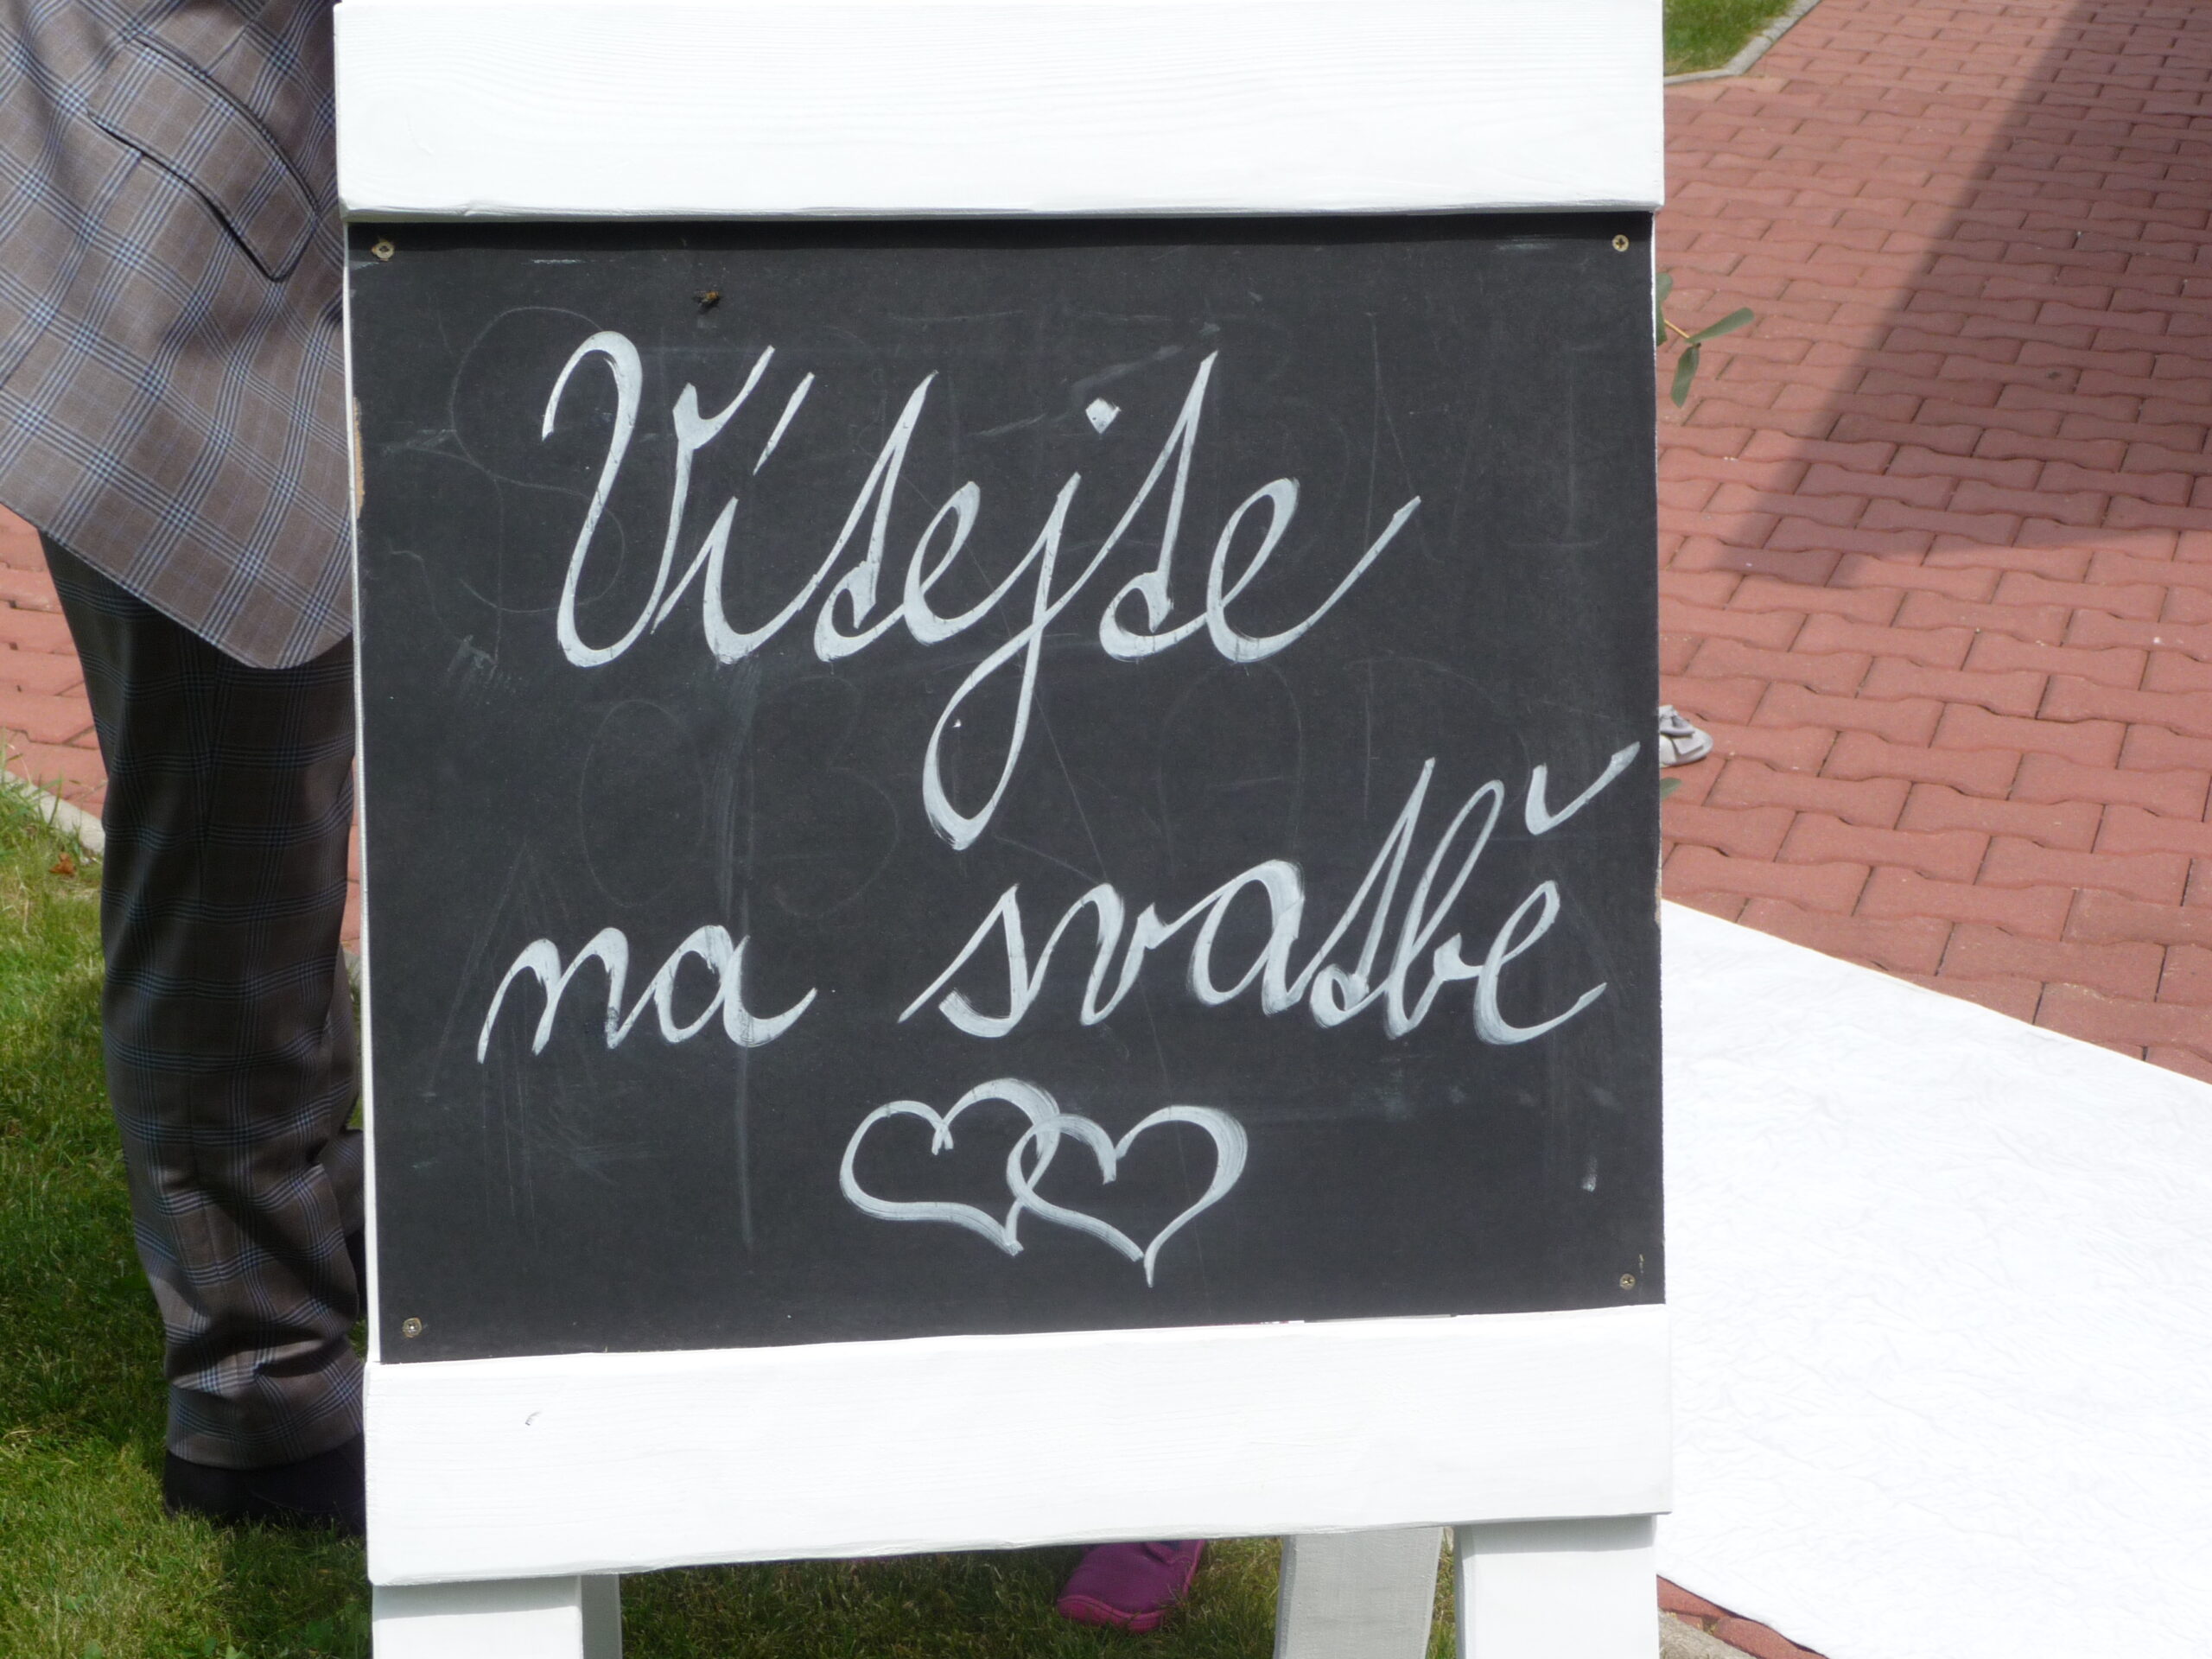 Vítejte
na svatbě